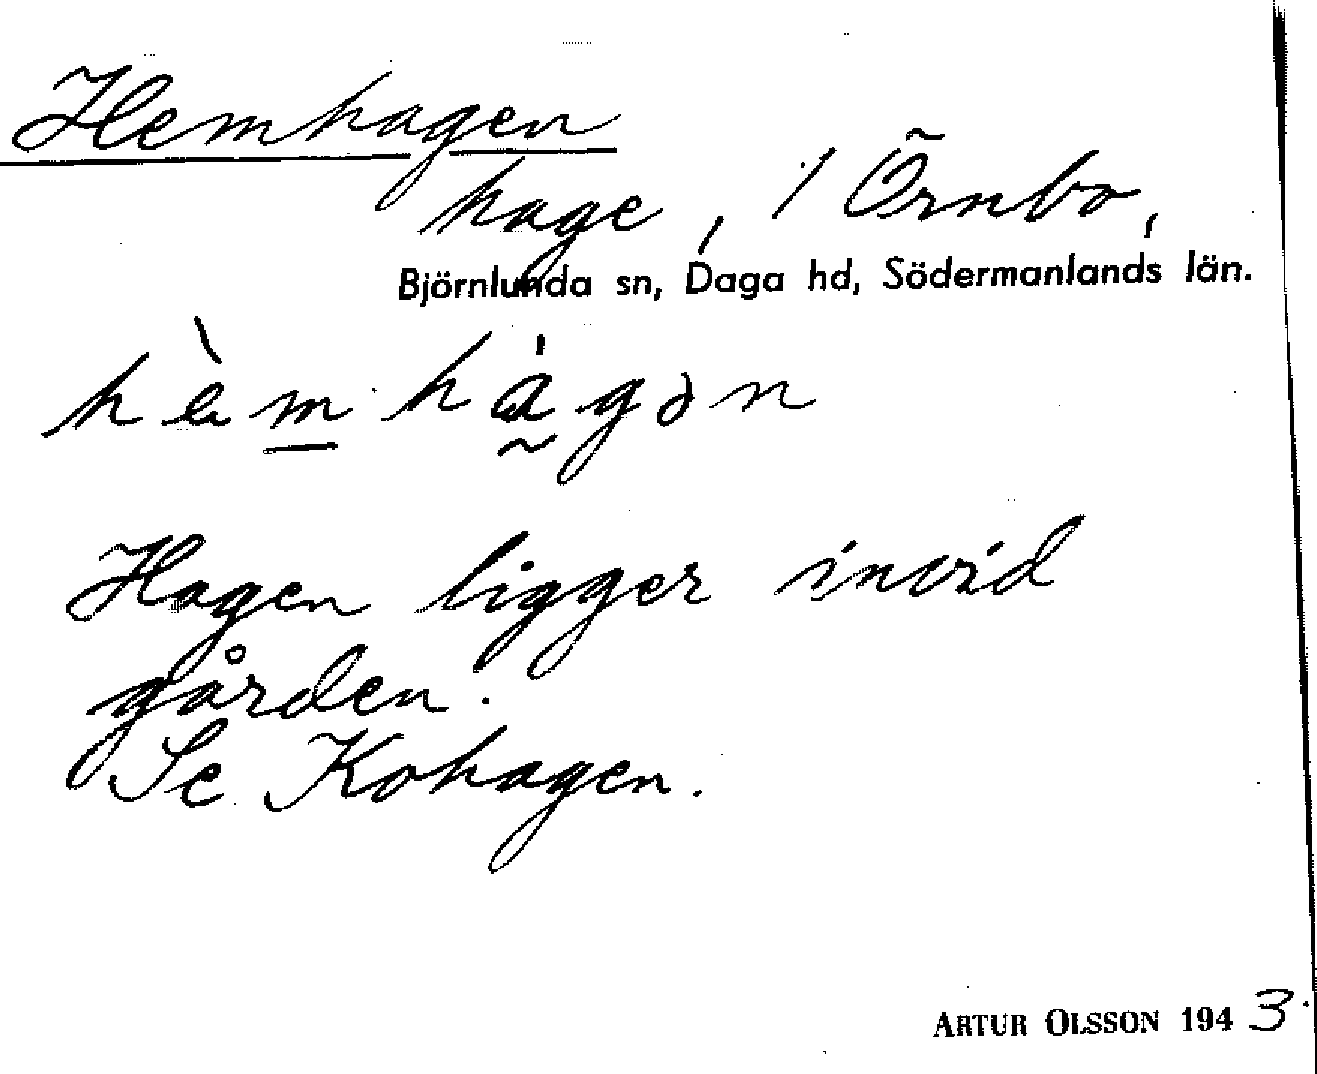 Hemhagen
hage, 1 Örnbo,
Björnlunda sn, Daga hd, Södermanlands län.
hèmhágən
Hagen ligger invid
gården.
Se Kohagen.
ARTUR OLSSON 1943.